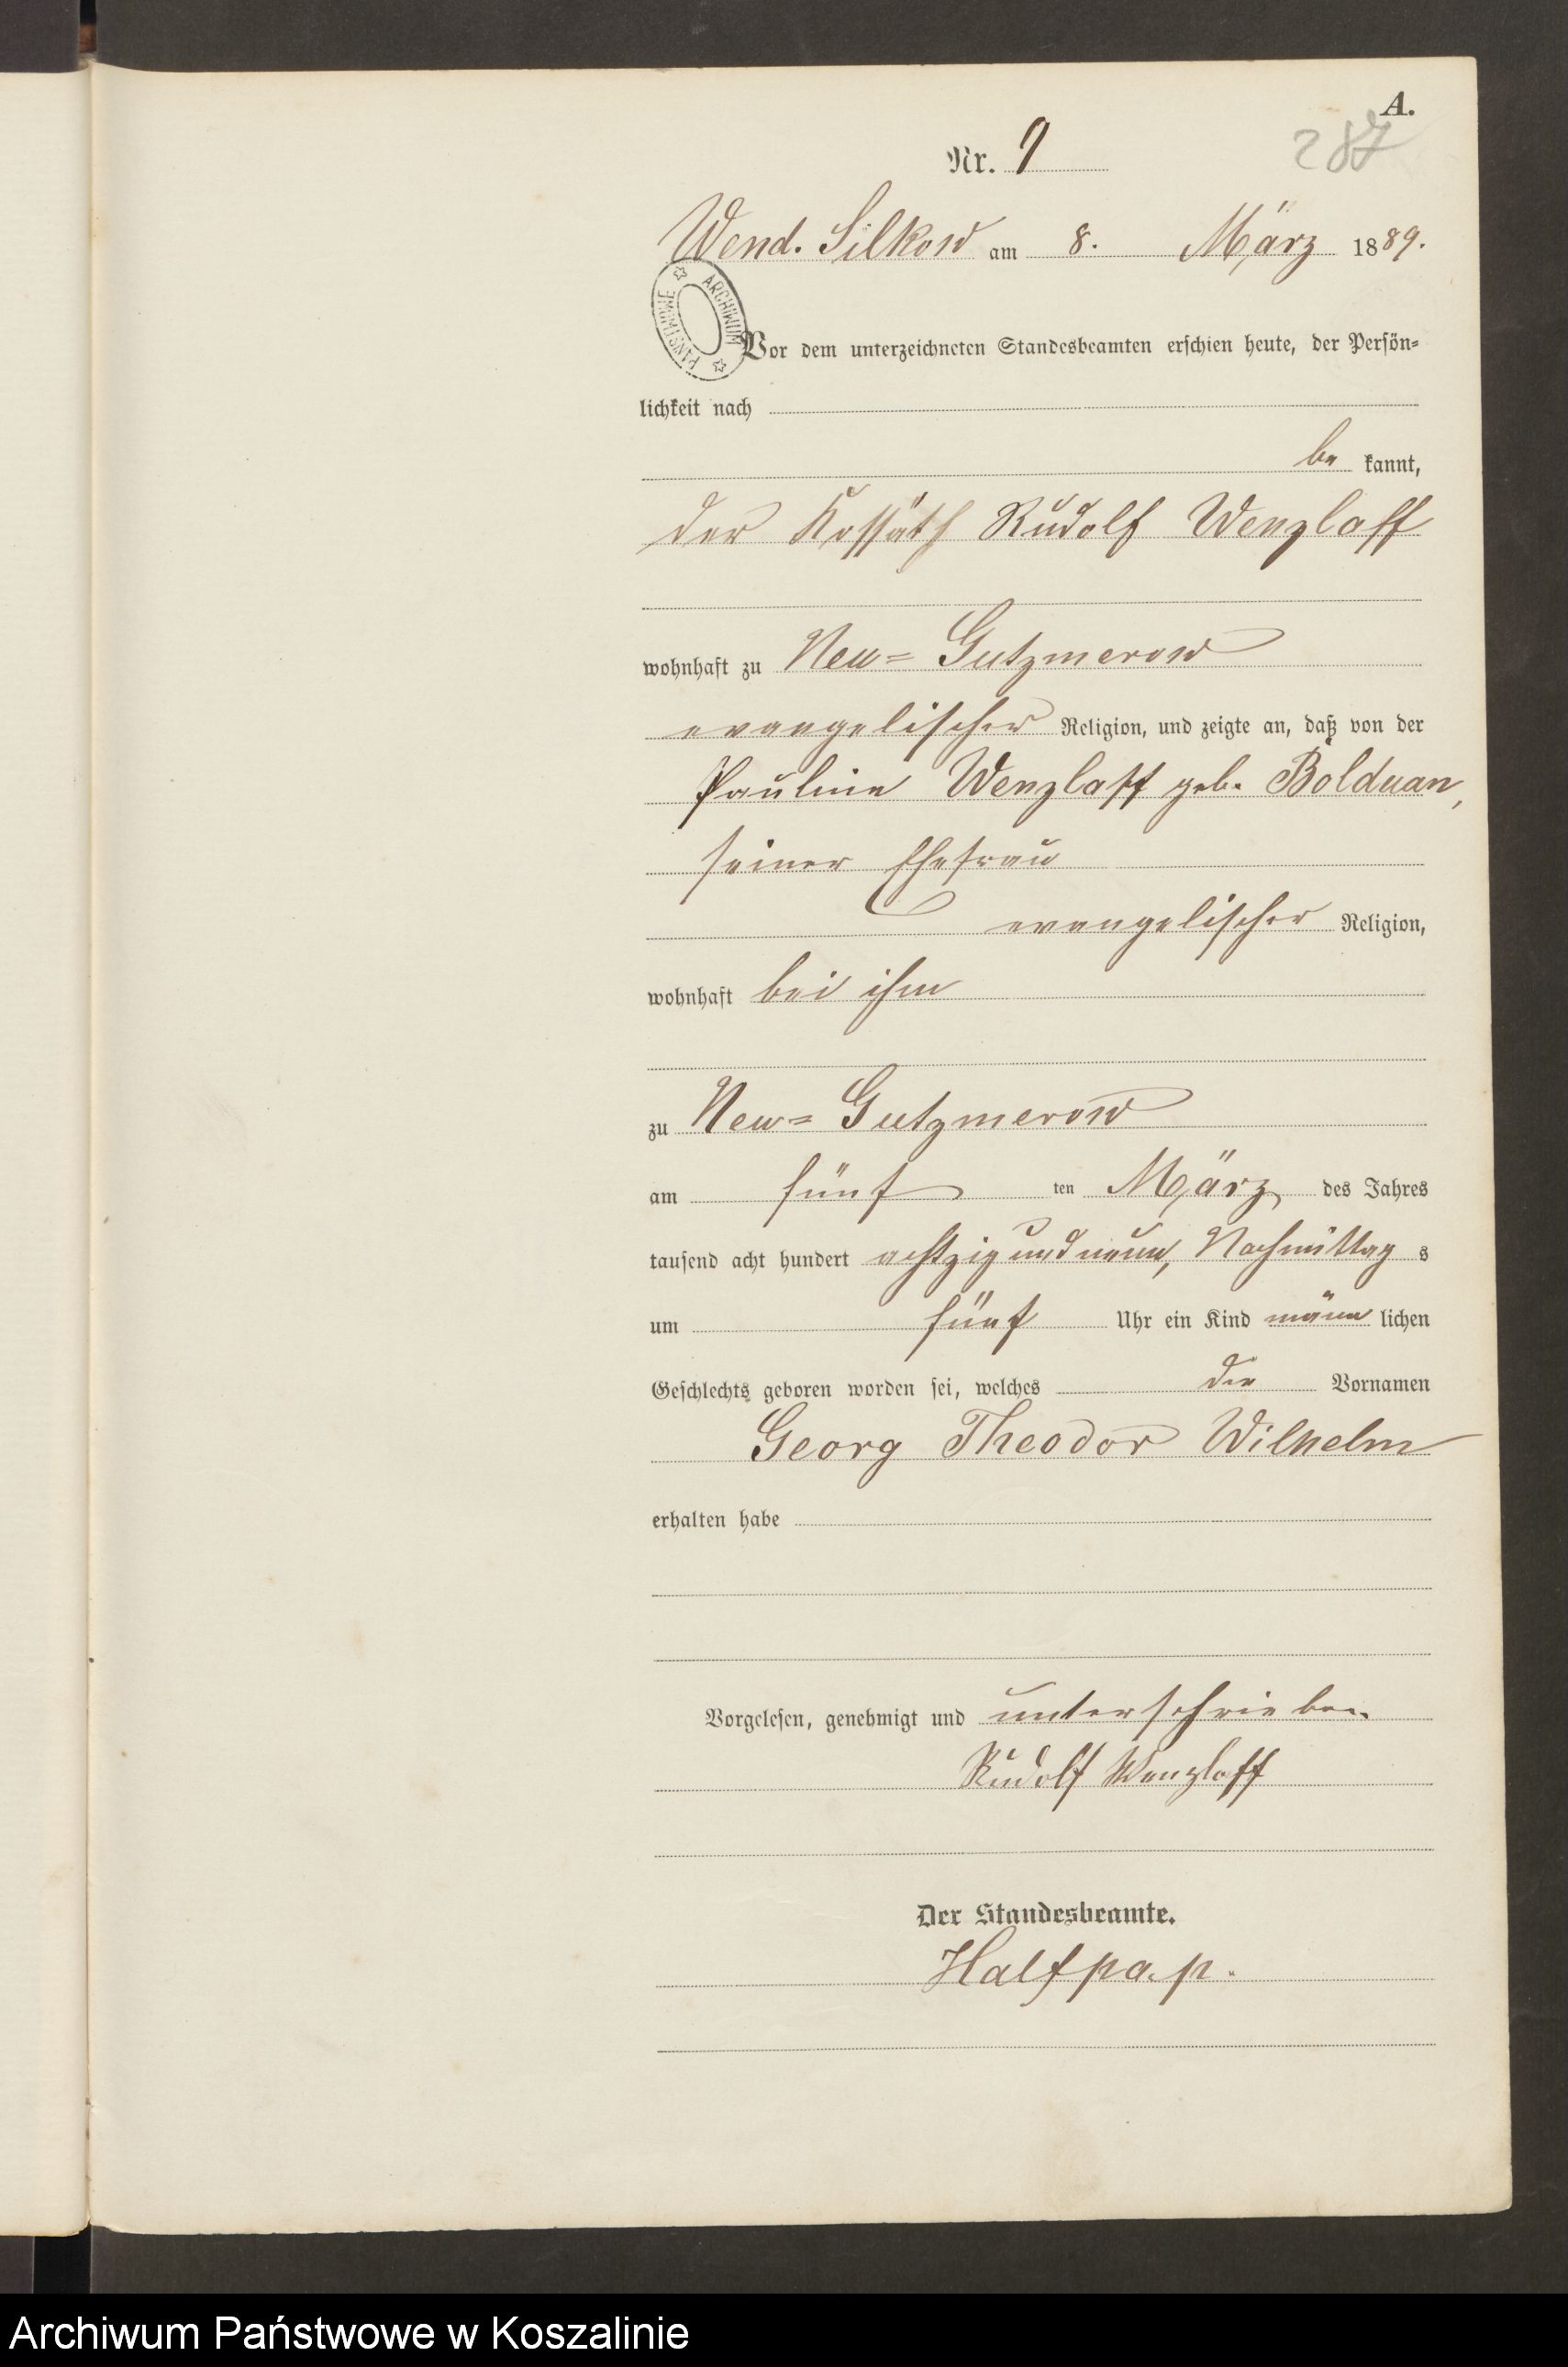 A.
287
Nr. 9
Wend. Silkow am 8. März 1889.
ARCHIWUM PAŃSTWOWE
Vor dem unterzeichneten Standesbeamten erschien heute, der Persön=
lichkeit nach
be kannt,
der Kossäth Rudolf Wenzlaff
wohnhaft zu Neu= Gutzmerow
evangelischer Religion, und zeigte an, daß von der
Pauline Wenzlaff geb. Bolduan,
seiner Ehefrau
evangelischer Religion,
wohnhaft bei ihm
zu Neu= Gutzmerow
am fünf ten März des Jahres
tausend acht hundert achtzig und neun, Nachmittag s
um fünf Uhr ein Kind männ lichen
Geschlechts geboren worden sei, welches die Vornamen
Georg Theodor Wilhelm
erhalten habe
Vorgelesen, genehmigt und unterschrieben.
Rudolf Wenzlaff
Der Standesbeamte.
Halfpap.
Archiwum Państwowe w Koszalinie